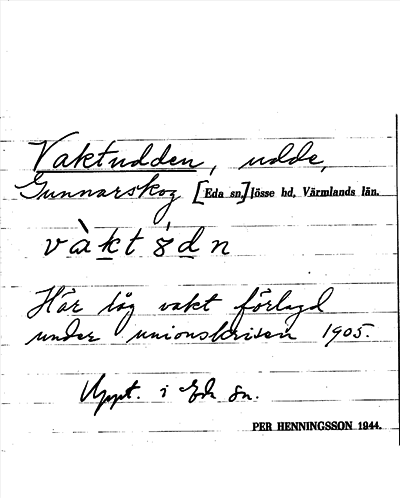 Vaktudden, udde,
Gunnarskog [Eda sn,] Jösse hd, Värmlands län.
vàktśdn
Här låg vakt förlagd
under unionskrisen 1905.
Uppt. i Eda sn.
PER HENNINGSSON 1944.